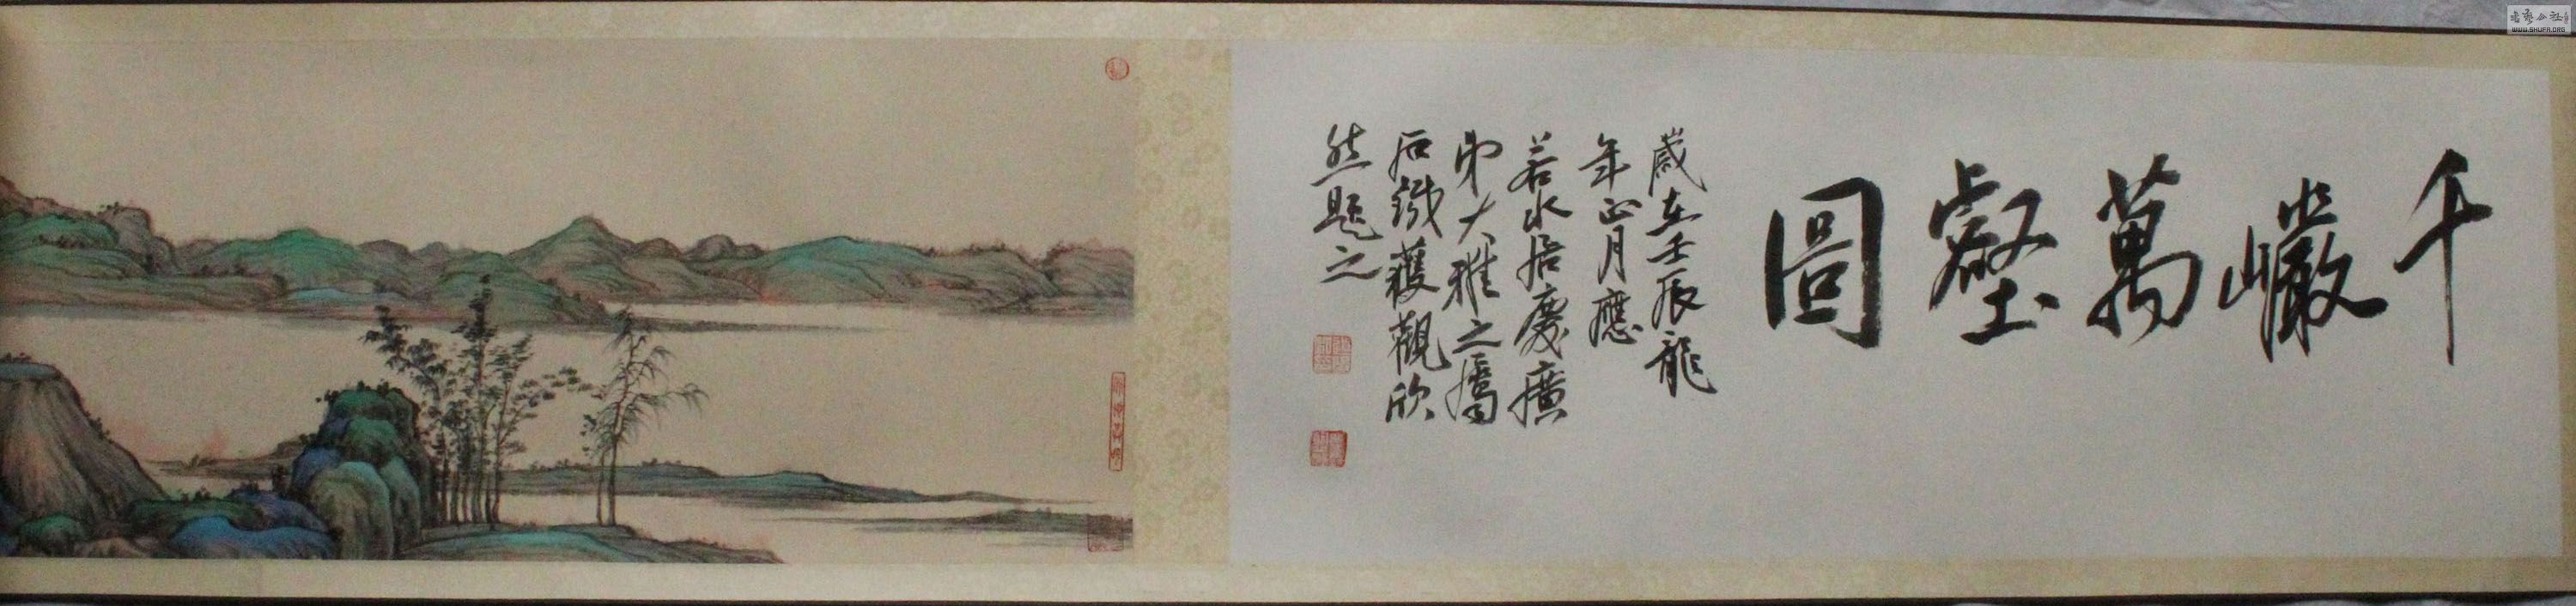 千巖萬壑圖
歲在壬辰龍
年正月應
若水居慶廣
弟大雅之屬
石鐵獲觀欣
然題之
WWW.SHUFA.ORG